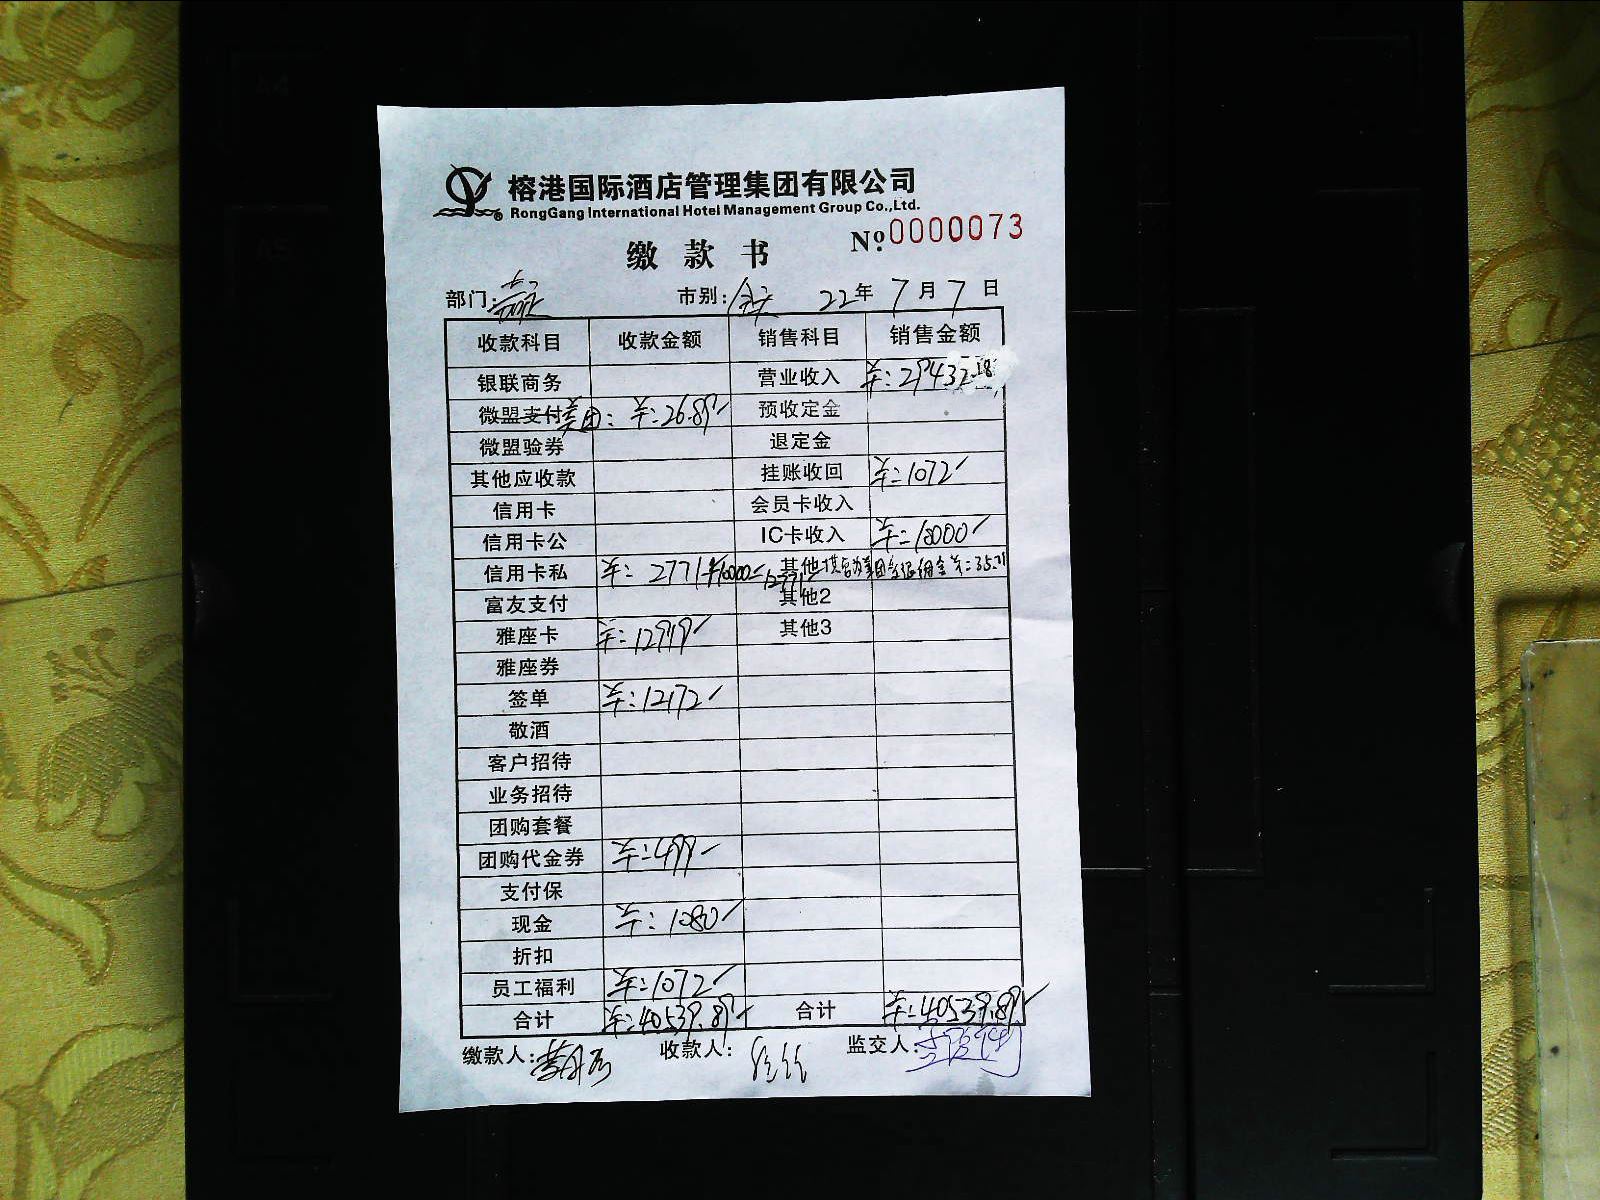 榕港国际酒店管理集团有限公司
RongGang International Hotel Management Group Co.,Ltd.
缴款书 №0000073
部门: 市别: 22年7月7日
收款科目 收款金额 销售科目 销售金额
银联商务 营业收入 29432.18
微盟支付 美团: 26.89 预收定金
微盟验券 退定金
其他应收款 挂账收回 1072
信用卡 会员卡收入
信用卡公 IC卡收入 10000
信用卡私 2771+10000=12771 其他 35.71
富友支付 其他2
雅座卡 12919 其他3
雅座券
签单 12172
敬酒
客户招待
业务招待
团购套餐
团购代金券 499
支付保
现金 1080
折扣
员工福利 1072
合计 40539.89 合计 40539.89
缴款人: 收款人: 监交人: